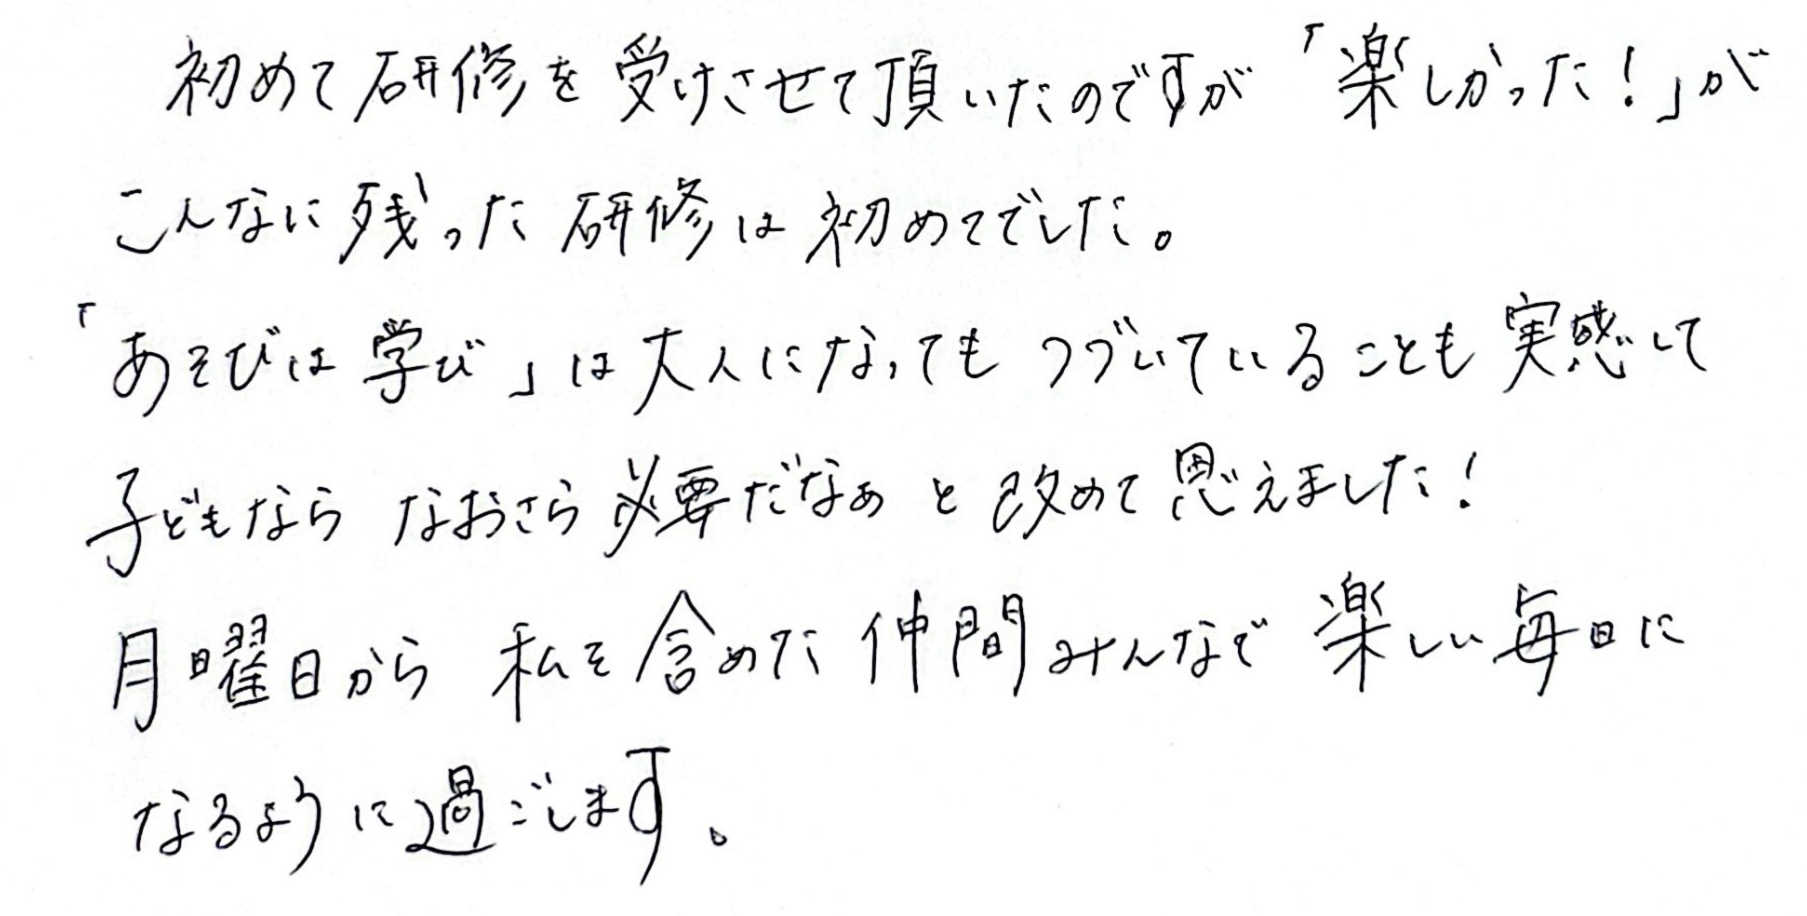 初めて研修を受けさせて頂いたのですが「楽しかった！」が
こんなに残った研修は初めてでした。
「あそびは学び」は大人になってもつづいていることも実感して
子どもなら なおさら必要だなぁと改めて思えました！
月曜日から 私を含めた仲間みんなで楽しい毎日に
なるように過ごします。